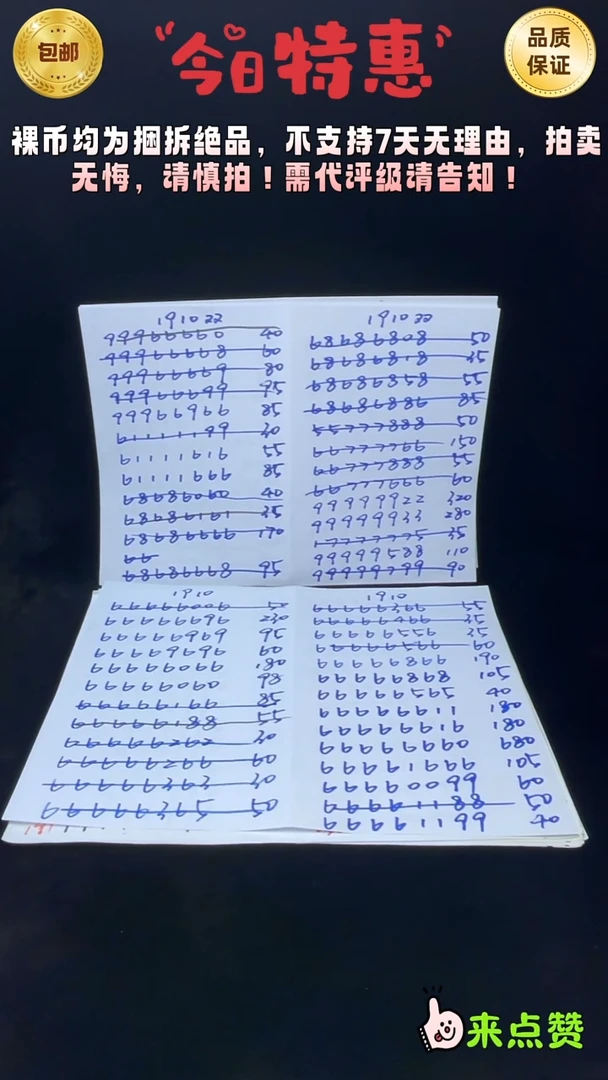 包邮
今日特惠
品质
保证
裸币均为捆拆绝品，不支持7天无理由，拍卖
无悔，请慎拍！需代评级请告知！
191022
99966660 40
99966668 60
99966669 80
99966699 95
99966966 85
61111199 30
61111616 55
61111666 85
68686060 40
68686161 35
68686666 170
66
68686668 95
191022
68686808 50
68686818 35
68686858 55
68686886 85
55777888 50
66777766 150
66777888 55
66777666 60
99999922 320
99999933 280
17777775 35
99999588 110
99999799 90
1910
66666006 50
66666696 230
66666969 95
66669696 60
66666066 180
66666060 98
66666166 85
66666188 55
66666262 30
66666266 60
66666363 30
66666365 50
1910
66666366 55
66666466 35
66666556 35
66666566 60
66666866 190
66666868 105
66666565 40
66666611 180
66666616 180
66666660 680
66661666 105
66660099 60
66661188 50
66661199 40
来点赞